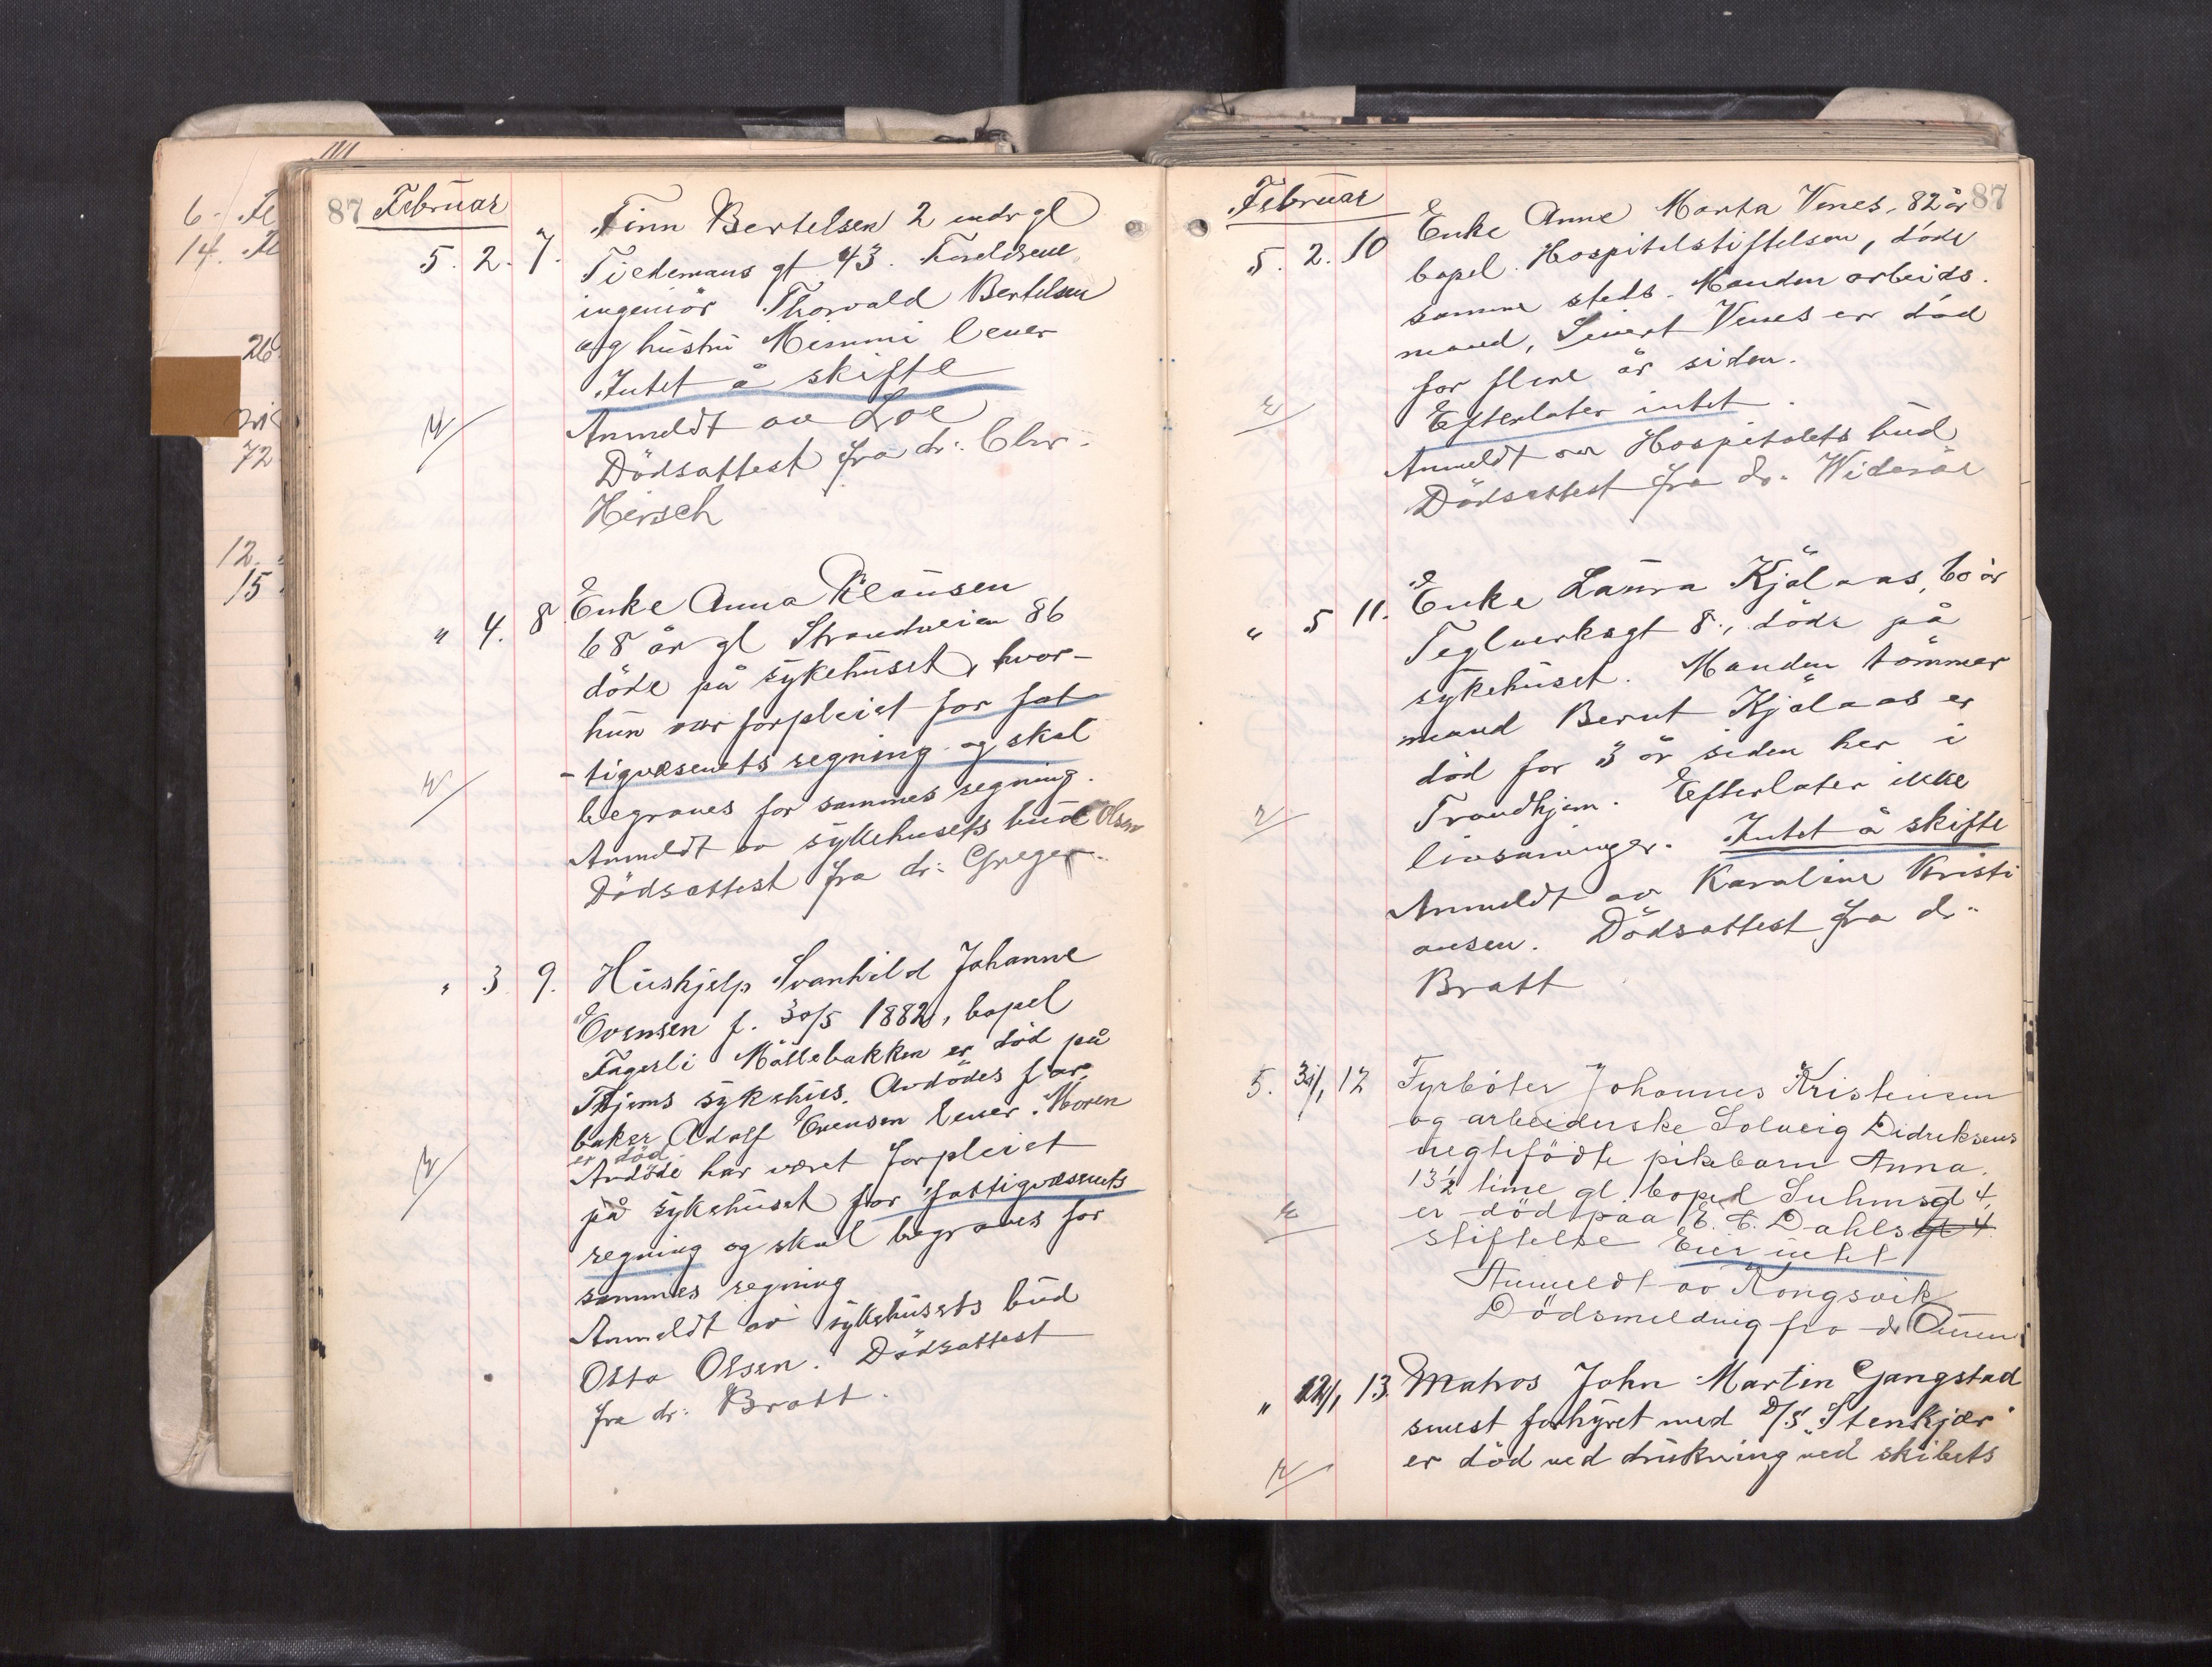 6-
14.
26
72
12.
15
87 Februar
5. 2. 7. Finn Bertelsen 2 mdr gl
Tiedemans gt 43. Foreldrene
ingeniör Thorvald Bertelsen
og hustru Mimmi lever
Intet å skifte
Anmeldt av Loe
Dödsattest fra dr: Chr.
Hirsch
" 4. 8. Enke Anna Klausen
68 år gl Strandveien 86
döde på sykehuset, hvor-
hun var forpleiet for fat
-tigvæsenets regning og skal
begraves for sammes regning.
Anmeldt av sykehusets bud Olsen
Dödsattest fra dr: Greger
" 3 9. Hushjelp Svanhild Johanne
Evensen f. 30/5 1882, bopel
Fagerli Möllebakken er död på
Thjems sykehus. Avdödes far,
baker Adolf Evensen lever. Moren
er död
Avdöde har været forpleiet
på sykehuset for fattigvæsenets
regning og skal begraves for
sammes regning
Anmeldt av sykehusets bud
Otto Olsen. Dödsattest
fra dr: Bratt.
Februar 87
5. 2. 10 Enke Anne Marta Venes, 82 år
bopel. Hospitalstiftelsen, döde
samme steds. Manden arbeids.
mand, Sivert Venes er död
for flere år siden.
Efterlater intet.
Anmeldt av Hospitalets bud
Dödsattest fra dr. Wideröe
" 5 11. Enke Laura Kjölaas, 60 år
Teglverksgt 8., döde på
sykehuset. Manden tömmer
mand Bernt Kjölaas er
död for 3 år siden her i
Trondhjem. Efterlater ikke
livsarvinger. Intet å skifte
Anmeldt av Karoline Kristi
ansen. Dödsattest fra dr.
Bratt
5. 31/1 12 Fyrböter Johannes Kristensen
og arbeiderske Solveig Didreksens
uegtefödte pikebarn Anna.
13½ time gl. bopel Suhmsgt 4,
er död paa E. C. Dahls gt 4.
stiftelse Eier intet
Anmeldt av Kongsvik
Dödsmelding fra dr
" 12/1, 13. Matros John Martin Gangstad
senest forhyret med D/S "Stenkjær"
er död ved drukning ved skibets